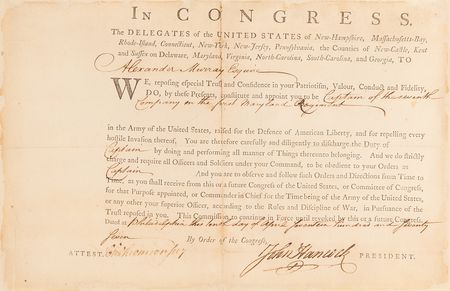 IN CONGRESS.
The DELEGATES of the UNITED STATES of New-Hampshire, Massachusetts-Bay,
Rhode-Island, Connecticut, New-York, New-Jersey, Pennsylvania, the Counties of New-Castle, Kent
and Sussex on Delaware, Maryland, Virginia, North-Carolina, South-Carolina, and Georgia, TO
Alexander Murray Esquire
WE, reposing especial Trust and Confidence in your Patriotism, Valour, Conduct and Fidelity,
DO, by these Presents, constitute and appoint you to be Captain of the seventh
Company in the first Maryland Regiment
in the Army of the United States, raised for the Defence of American Liberty, and for repelling every
hostile Invasion thereof. You are therefore carefully and diligently to discharge the Duty of
Captain by doing and performing all manner of Things thereunto belonging. And we do strictly
charge and require all Officers and Soldiers under your Command, to be obedient to your Orders as
Captain And you are to observe and follow such Orders and Directions from Time to
Time, as you shall receive from this or a future Congress of the United States, or Committee of Congress,
for that Purpose appointed, or Commander in Chief for the Time being of the Army of the United States,
or any other your superior Officer, according to the Rules and Discipline of War, in Pursuance of the
Trust reposed in you. This Commission to continue in Force until revoked by this or a future Congress.
Dated at Philadelphia the tenth day of April seventeen hundred and seventy
seven
By Order of the Congress,
ATTEST. John Hancock PRESIDENT.